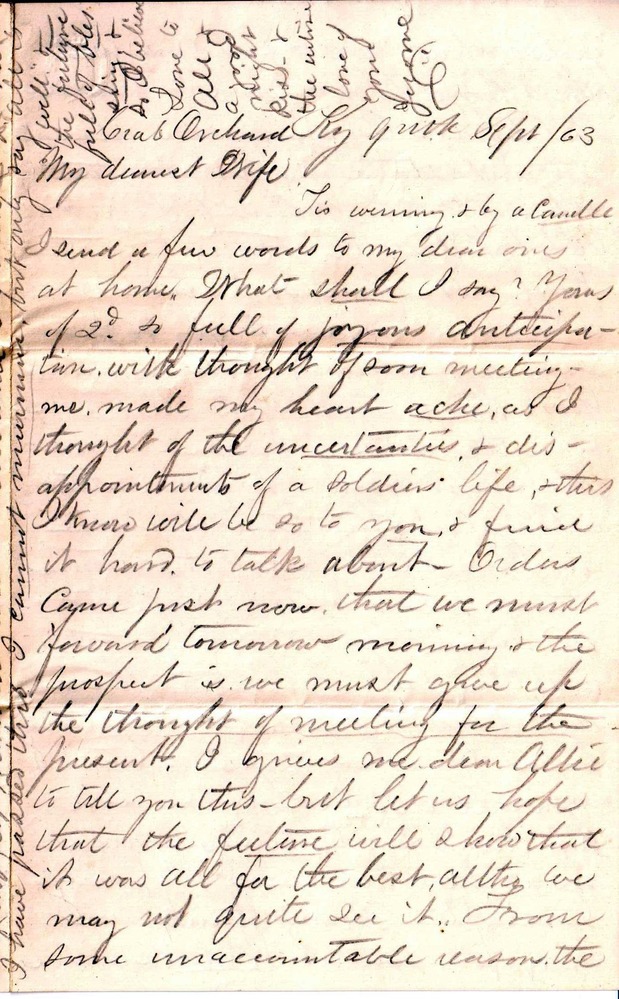 Crab Orchard Ky 9th Sept /63
My dearest Wife
'Tis evening & by a Candle
I send a few words to my dear ones
at home. What shall I say? Yours
of 2d so full of joyous anticipa-
tion, with thought of soon meeting
me, made my heart ache, as I
thought of the uncertanties, & dis-
appointments of a soldiers life, & this
I know will be so to you, & find
it hard to talk about - Orders
Came just now, that we must
forward tomorrow morning & the
prospect is we must give up
the thought of meeting for the
present. I grieves me dear Allie
to tell you this - but let us hope
that the future will show that
it was all for the best, altho we
may not quite see it. From
some unaccountable reason, the
I have passed thus I cannot murmur, but only say all is
well
the future
full of bles
sing &
so I believe
Love to
All &
a good
night
kiss &
the entire
love of
your